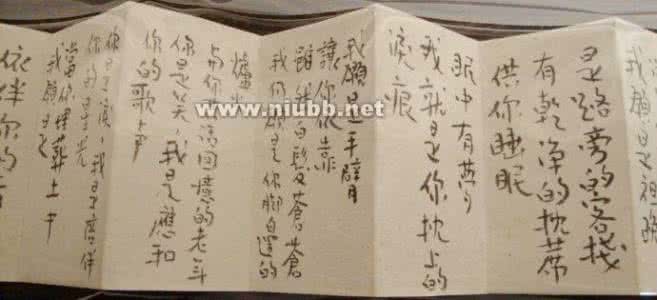 我願是
是路旁的客棧
有乾淨的枕蓆
供你睡眠
眠中有夢
我就是你枕上的
淚痕
我願是手臂
讓你依靠
雖然白髮蒼蒼
我仍願是你腳邊的
爐火
與你共話回憶的老年
你是笑,我是應和
你的歌聲
你是淚,我是陪伴
你的星光
當你埋葬土中
我願是
依伴你的青
www.niubb.net